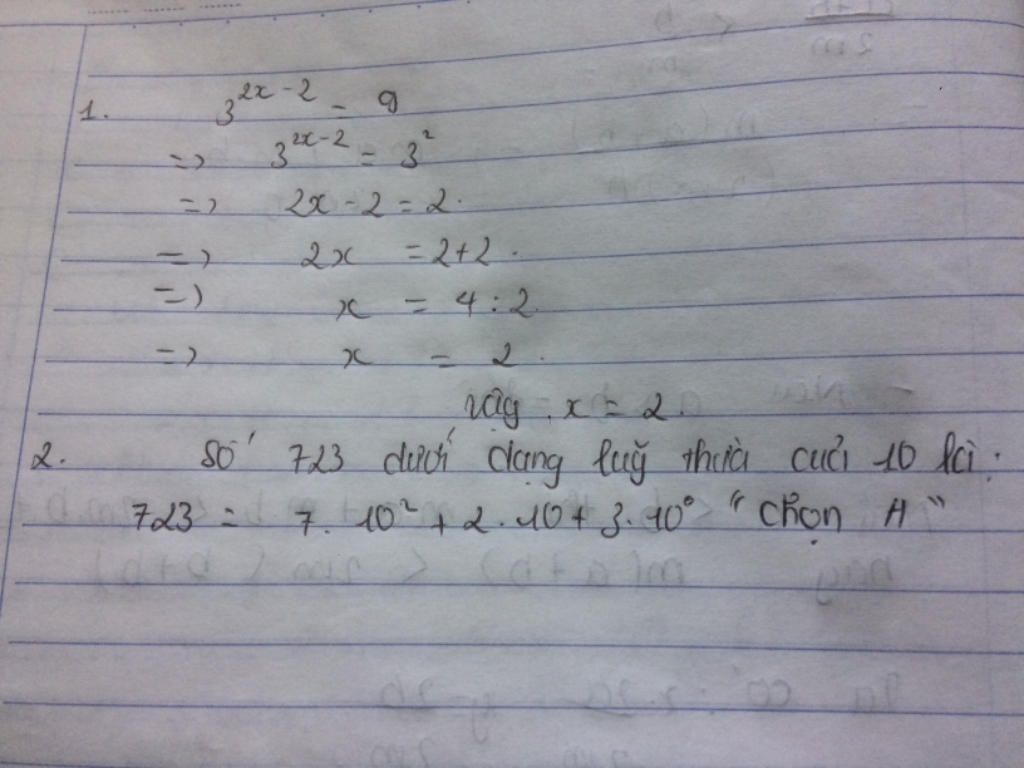 1. 3^{2x-2} = 9
=> 3^{2x-2} = 3^2
=> 2x - 2 = 2.
=> 2x = 2+2.
=> x = 4 : 2.
=> x = 2.
vậy x = 2.
2. Số 723 dưới dạng luỹ thừa của 10 là:
723 = 7. 10^2 + 2. 10 + 3. 10^0 "Chọn A"